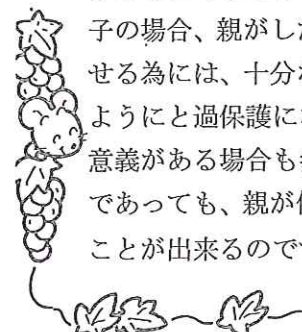 子の場合、親がした
せる為には、十分な
ようにと過保護に
意義がある場合も
であっても、親が
ことが出来るので